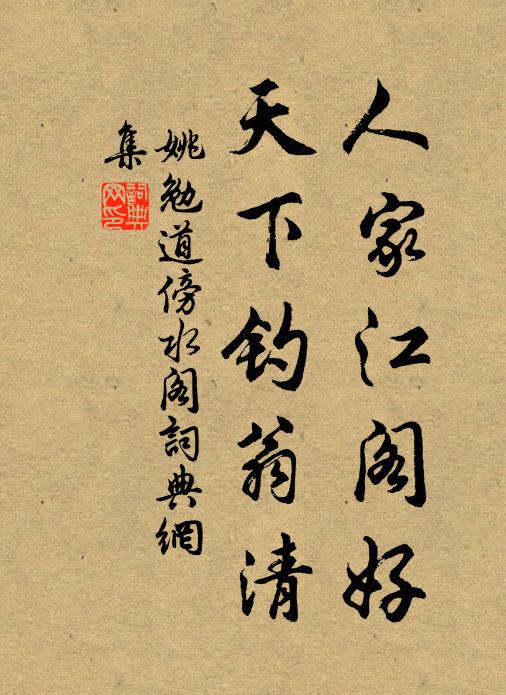 人家江阁好
天下钓翁清
姚勉道傍水阁詞典網
集
詞典網印